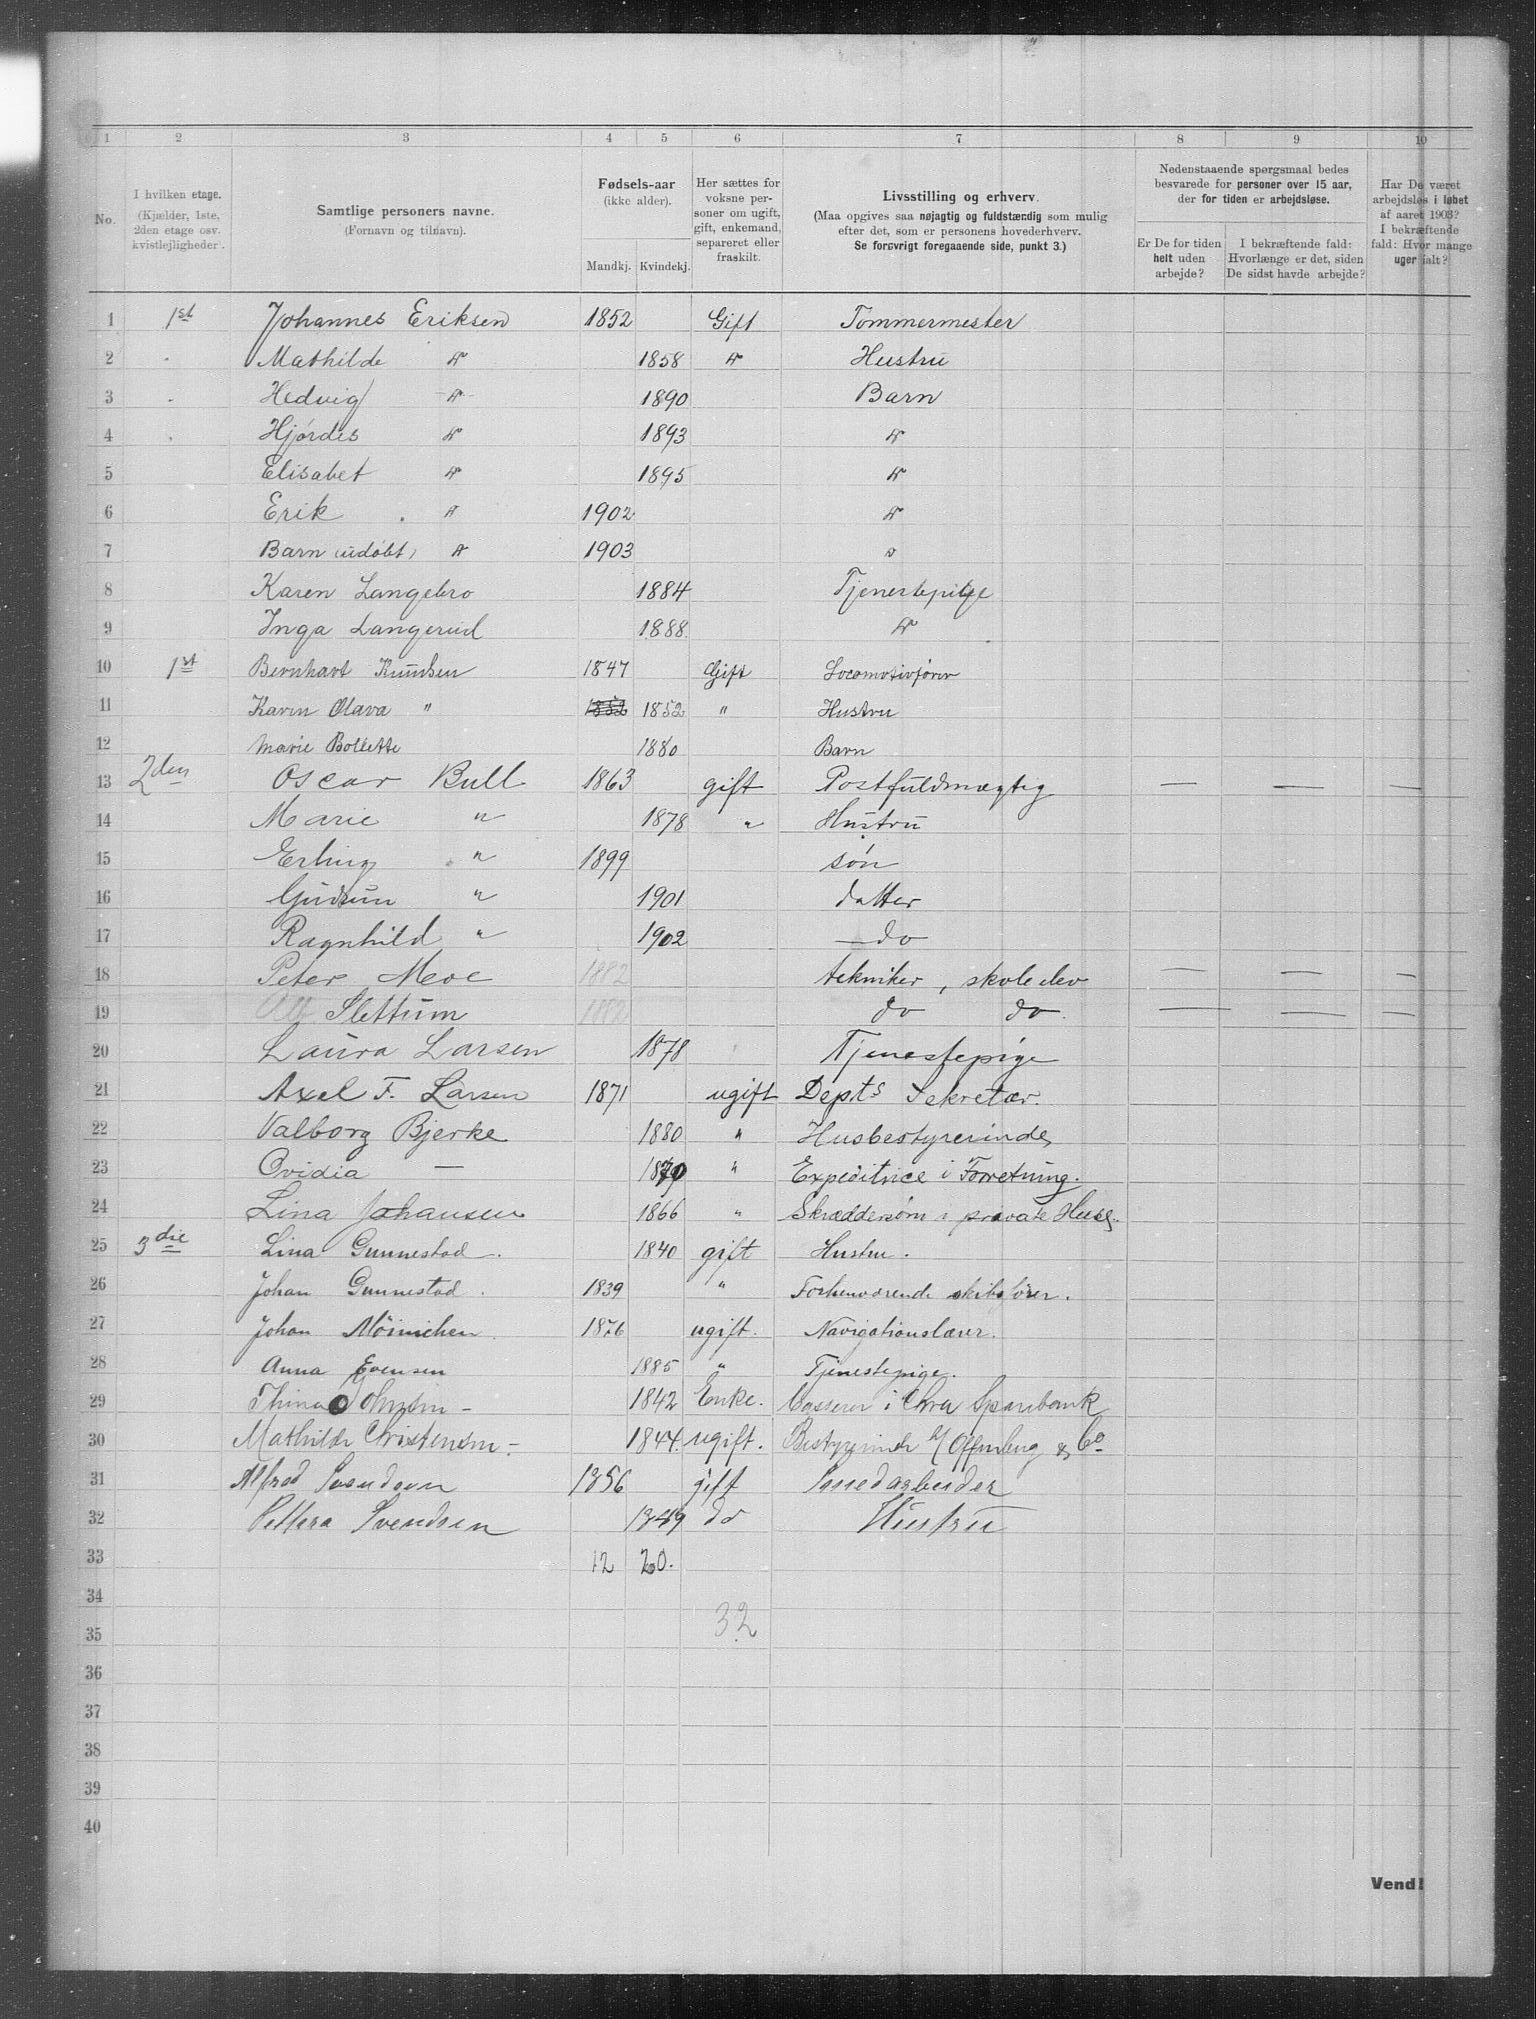 1 2 3 4 5 6 7 8 9 10
No.
I hvilken etage.
(Kjælder, 1ste,
2den etage osv.
kvistlejligheder.
Samtlige personers navne.
(Fornavn og tilnavn).
Fødsels-aar
(ikke alder).
Mandkj. Kvindekj.
Her sættes for
voksne per-
soner om ugift,
gift, enkemand,
separeret eller
fraskilt.
Livsstilling og erhverv.
(Maa opgives saa nøjagtig og fuldstændig som mulig
efter det, som er personens hovederhverv.
Se forøvrigt foregaaende side, punkt 3.)
Nedenstaaende spørgsmaal bedes
besvarede for personer over 15 aar,
der for tiden er arbejdsløse.
Er De for tiden
helt uden
arbejde?
I bekræftende fald:
Hvorlænge er det, siden
De sidst havde arbejde?
Har De været
arbejdsløs i løbet
af aaret 1903?
I bekræftende
fald: Hvor mange
uger ialt?
1 1st Johannes Eriksen 1852 Gift Tommermester
2 Mathilde " 1858 " Hustru
3 Hedvig " 1890 Barn
4 Hjørdis " 1893 "
5 Elisabet " 1895 "
6 Erik " 1902 "
7 Barn (udøbt) " 1903 "
8 Karen Langebro 1884 Tjenestepige
9 Inga Langerud 1888. "
10 1st Bernhart Knudsen 1847 Gift Locomotivfører
11 Karen Olava " 1852 1852 " Hustru
12 Marie Bollette 1880 Barn
13 2den Oscar Bull 1863 gift Postfuldmægtig — — —
14 Marie " 1878 " Hustru
15 Erling " 1899 søn
16 Gudrun " 1901 datter
17 Ragnhild " 1902 — do
18 Peter Moe 1882 tekniker, skoleelev — — —
19 Alf Slettum 1882 do do. — — —
20 Laura Larsen 1878 Tjenestepige
21 Axel F. Larsen 1871 ugift Depts Sekretær.
22 Valborg Bjerke 1880 " Husbestyrerinde
23 Ovidia — 1870 " Expeditrice i Forretning.
24 Lina Johansen 1866 " Skræddersøm i private Huse.
25 3die Lina Gunnestad. 1840 gift Hustru.
26 Johan Gunnestad. 1839 " Forhenværende skibsfører.
27 Johan Mõinichen. 1876 ugift. Navigationslærer.
28 Anna Evensen 1885 " Tjenestepige.
29 Thina 1842 Enke. i Sparebank
30 Mathilde Christensen - 1844. ugift. Bestyrerinde & Co.
31 Alfred Svendsen 1856 gift
32 Svendsen 1849 do Hustru
33 12 20.
34
32
35
36
37
38
39
40
Vend!